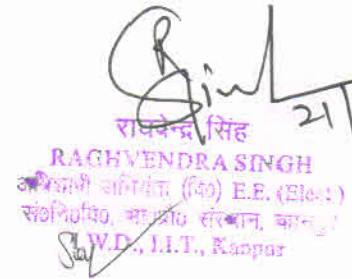 21
राघवेन्द्र सिंह
RAGHVENDRA SINGH
अधिशासी अभियंता (वि०) E.E. (Elect.)
सं०नि०वि०, भा०प्रौ० संस्थान, कानपुर
W.D., I.I.T., Kanpur